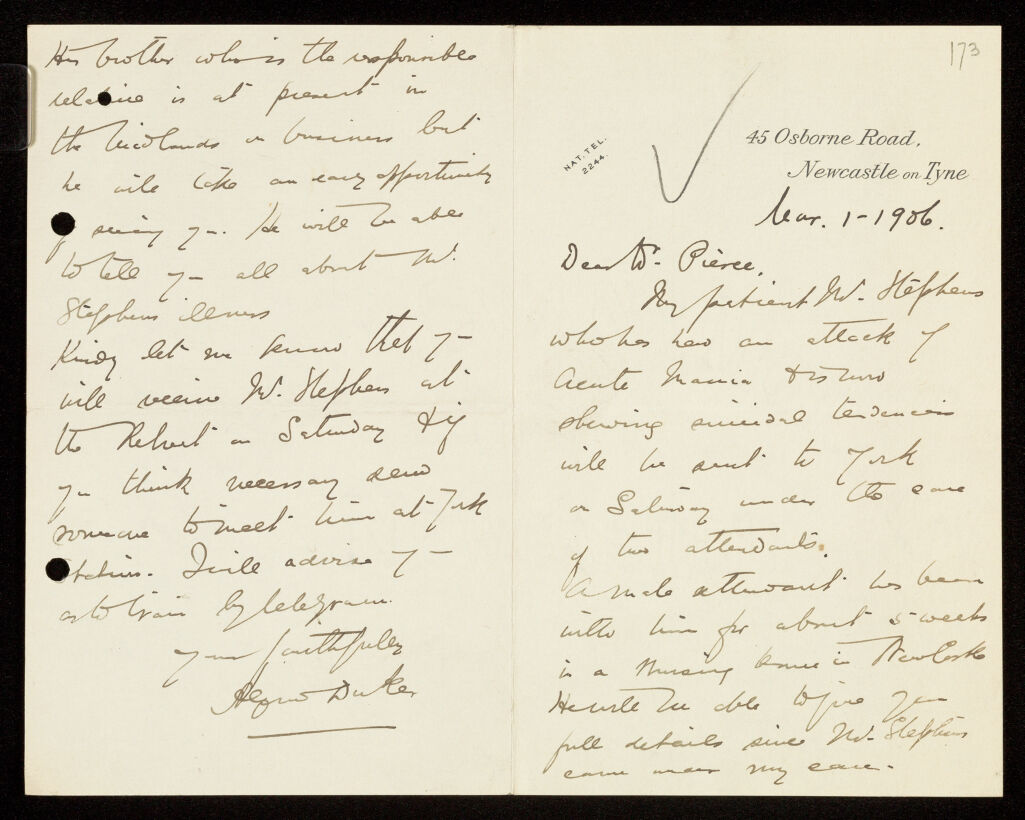 173
NAT. TEL.
2244.
45 Osborne Road,
Newcastle on Tyne
Mar. 1-1906.
Dear Dr. Pierce,
My patient Mr. Stephens
who has had an attack of
Acute Mania & is now
shewing suicidal tendencies
will be sent to York
on Saturday under the care
of two attendants.
A male attendant has been
with him for about 5 weeks
in a Nursing home in Newcastle
He will be able to give you
full details since Mr. Stephens
came under my care.
His brother who is the responsible
relative is at present in
the Midlands on business but
he will take an early opportunity
of seeing you. He will be able
to tell you all about Mr.
Stephens illness
Kindly let me know that you
will receive Mr. Stephens at
the Retreat on Saturday & if
you think necessary send
someone to meet him at York
Station. I will advise you
as to train by telegram.
Yours faithfully
Alfred Parker